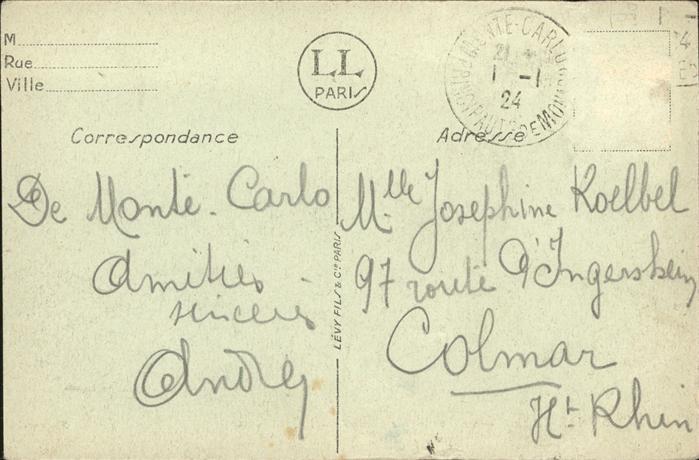 M
Rue
Ville
LL
PARIS
MONTE-CARLO
1 -1
24
Correspondance
Adresse
De Monte-Carlo
Amitiés
sincères
André
LÉVY FILS & Cie PARIS
Mlle Josephine Koelbel
97 route d'Ingersheim
Colmar
Ht Rhin